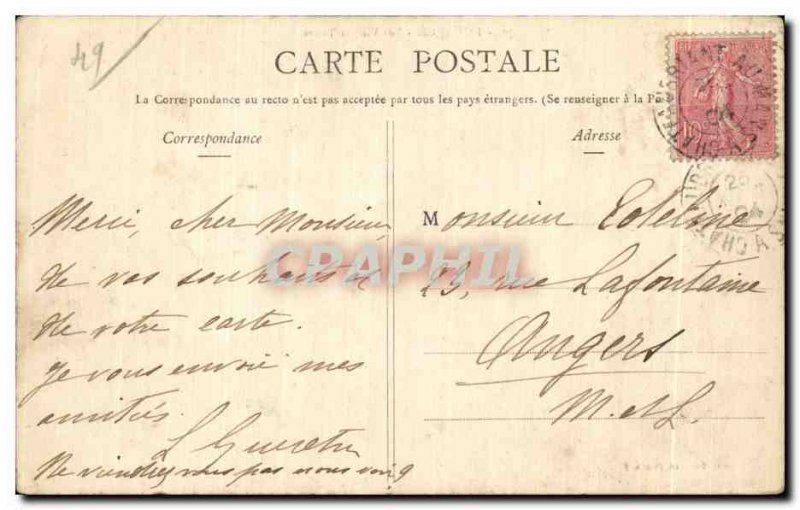 49
CARTE POSTALE
La Correspondance au recto n'est pas acceptée par tous les pays étrangers. (Se renseigner à la Po
Correspondance
Adresse
Merci, cher Monsieur,
de vos souhaits et
de votre carte.
Je vous envoie mes
amitiés.
Ne viendrez vous pas nous voir ?
Monsieur
23, rue Lafontaine
Angers
M. et L.
CPAPHIL